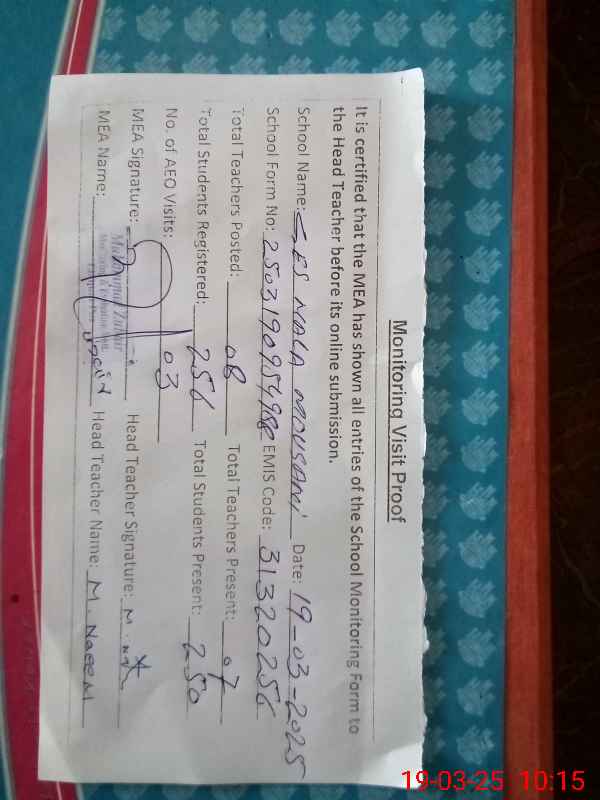 Monitoring Visit Proof
It is certified that the MEA has shown all entries of the School Monitoring Form to
the Head Teacher before its online submission.
School Name: GES MALA MOUSANI Date: 19-03-2025
School Form No: EMIS Code: 31320256
Total Teachers Posted: 08 Total Teachers Present: 07
Total Students Registered: 256 Total Students Present: 250
No. of AEO Visits: 03
MEA Signature: Head Teacher Signature:
MEA Name: Head Teacher Name: M. Naeem
19-03-25 10:15